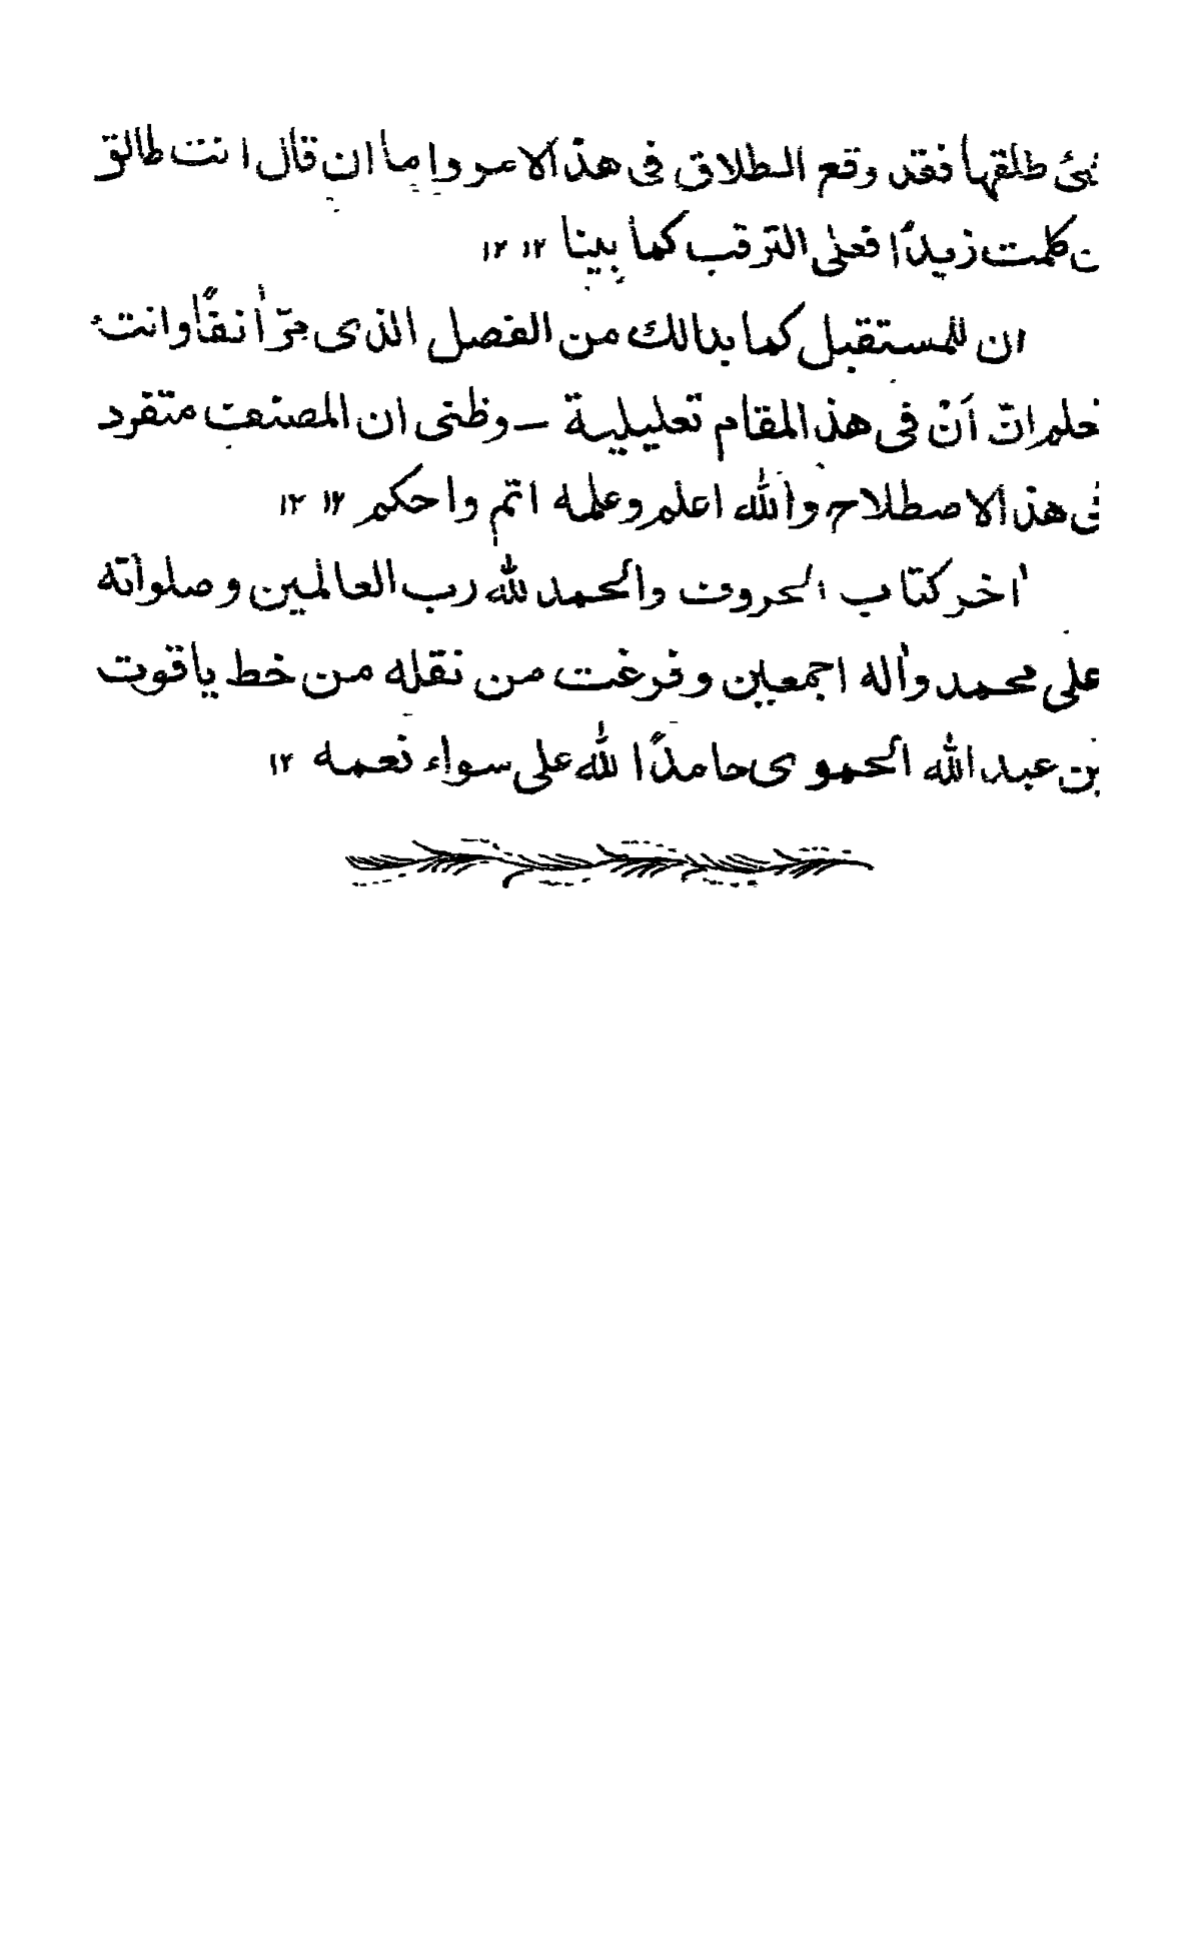 شئ طلقها فقد وقع الطلاق فى هذا الامر واما ان قال انت طالق
ن كلمت زيدًا فعلى الترقب كما بينا ١٢ ١٢
ان للمستقبل كما بدالك من الفصل الذى مرّ اٰنفًا وانت
تعلم انّ اَنْ فى هذ المقام تعليلية – وظنى ان المصنف متفرد
فى هذ الاصطلاح والله اعلم وعلمه اتم واحكم ١٢ ١٢
اٰخر كتاب الحروف والحمد لله رب العالمين وصلواته
على محمد واٰله اجمعين وفرغت من نقله من خط ياقوت
بن عبد الله الحموى حامدًا لله على سواء نعمه ١٢